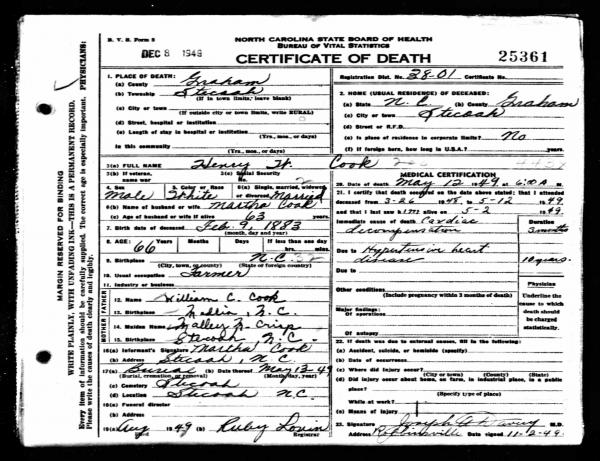 B. V. S. Form 8
NORTH CAROLINA STATE BOARD OF HEALTH
BUREAU OF VITAL STATISTICS
DEC 8 1949
CERTIFICATE OF DEATH
25361
MARGIN RESERVED FOR BINDING
WRITE PLAINLY, WITH UNFADING INK—THIS IS A PERMANENT RECORD.
Every item of information should be carefully supplied. The correct age is especially important. PHYSICIANS:
Please write the causes of death clearly and legibly.
1. PLACE OF DEATH:
(a) County Graham
(b) Township Stecoah
(If in town limits, leave blank)
(c) City or town
(If outside city or town limits, write RURAL)
(d) Street, hospital or institution
(e) Length of stay in hospital or institution
(Yrs., mos., or days)
In this community
(Yrs., mos., or days)
Registration Dist. No. 38-01 Certificate No.
2. HOME (USUAL RESIDENCE) OF DECEASED:
(a) State N.C. (b) County Graham
(c) City or town Stecoah
(d) Street or R.F.D.
(e) Is place of residence in corporate limits? No
(f) If foreign born, how long in U.S.A.? years
3(a) FULL NAME Henry W. Cook
3(b) If veteran, name war
3(c) Social Security No.
4. Sex Male
5. Color or Race White
6(a) Single, married, widowed or divorced Married
6(b) Name of husband or wife Martha Cook
6(c) Age of husband or wife if alive 63 years.
7. Birth date of deceased Feb. 9, 1883
(month, day and year)
8. AGE: Years 66 Months Days If less than one day
hrs. mins.
9. Birthplace N.C.
(City, town, or county) (State or foreign country)
10. Usual occupation Farmer
11. Industry or business
FATHER
12. Name William C. Cook
13. Birthplace N.C.
MOTHER
14. Maiden Name Malley N. Crisp
15. Birthplace Stecoah N.C.
16(a) Informant's Signature Martha Cook
(b) Address Stecoah, N.C.
17(a) Burial (b) Date thereof May 13-49
(Burial, cremation, or removal) (Month/day, year)
(c) Cemetery Stecoah
(d) Location Stecoah N.C.
18(a) Funeral director
(b) Address
19(a) Aug 1949 Ruby Lovin
Registrar
MEDICAL CERTIFICATION
20. Date of death May 12 1949 at 6:00 A M.
21. I certify that death occurred on the date above stated; that I attended
deceased from 3-26 1948 to 5-12 1949
and that I last saw him alive on 5-2 1949.
Immediate cause of death Cardiac decompensation
Duration 3 months
Due to Hypertensive heart disease 10 years.
Due to
Other conditions
(Include pregnancy within 3 months of death)
Major findings:
Of operations
Of autopsy
Physician
Underline the cause to which death should be charged statistically.
22. If death was due to external causes, fill in the following:
(a) Accident, suicide, or homicide (specify)
(b) Date of occurrence.
(c) Where did injury occur?
(City or town) (County) (State)
(d) Did injury occur about home, on farm, in industrial place, in a public place?
(Specify type of place)
While at work?
(e) Means of injury
23. Signature M.D.
Address Robbinsville Date signed 11-2-49.